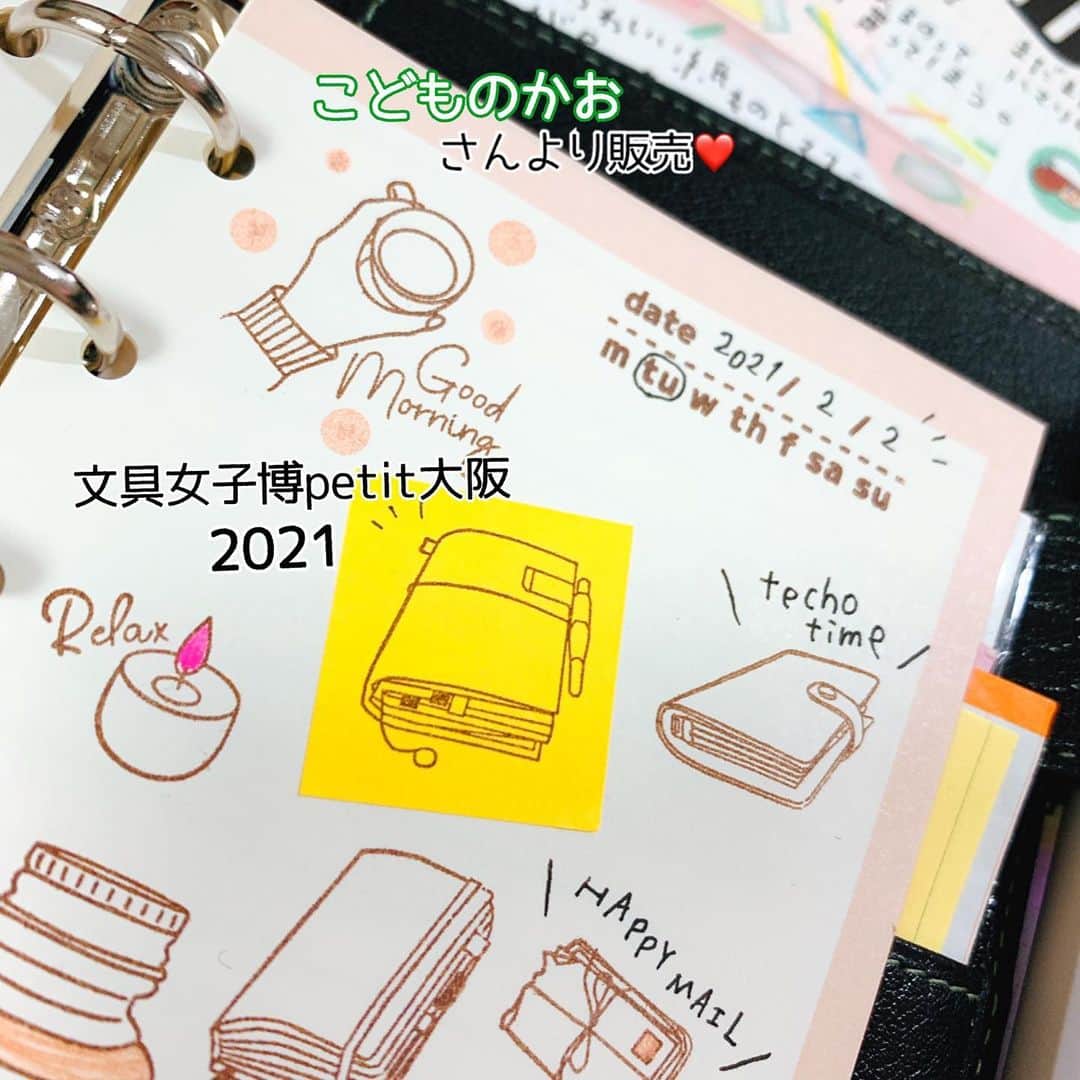 こどものかお
さんより販売❤
date 2021/2/2
m tu w th f sa su
Good
Morning
文具女子博petit大阪
2021
Relax
techo
time
HAPPY
MAIL